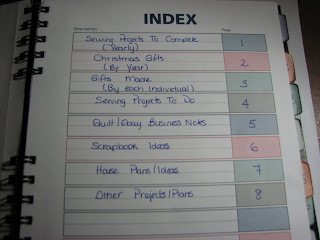 INDEX
Description Page
Sewing Projects To Complete
(Yearly) 1
Christmas Gifts
(By Year) 2
Gifts Made
(By each individual) 3
Sewing Projects To Do 4
Quilt/Ebay Business Notes 5
Scrapbook Ideas 6
House Plans/Ideas 7
Other Projects/Plans 8